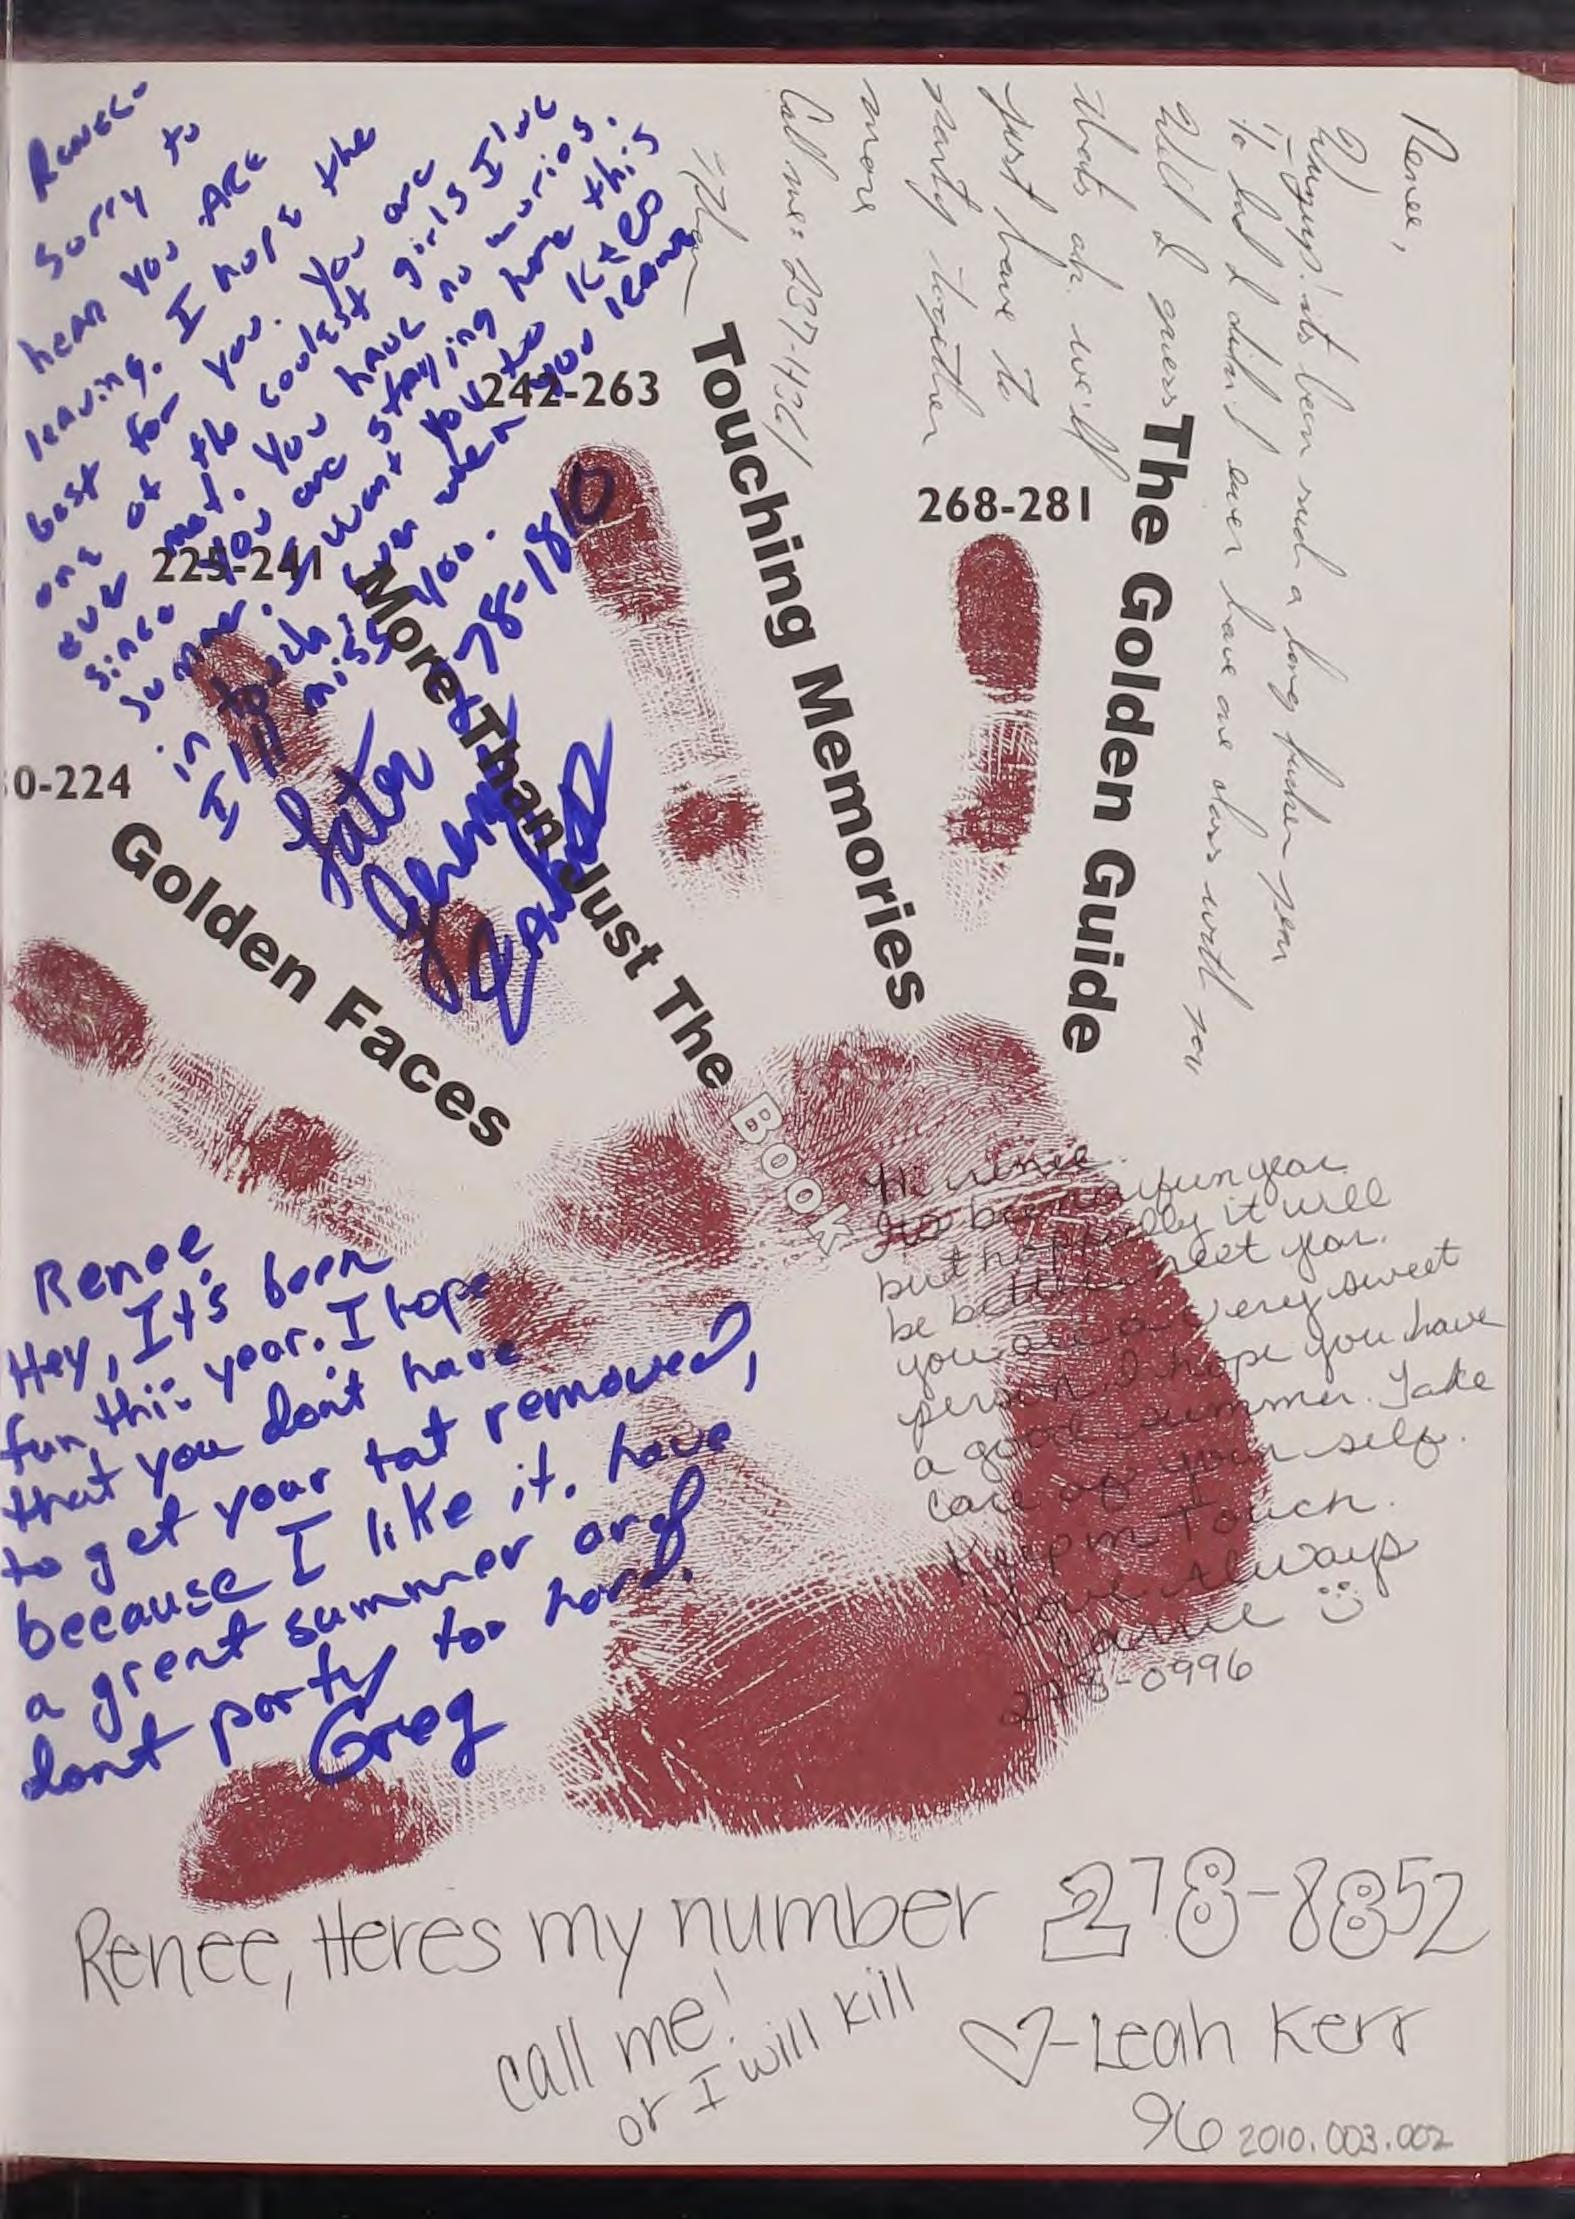 Renee-
Sorry to
hear you are
leaving. I hope the
best for you. You are
one of the coolest girls I've
ever met. You have no worries.
since you are staying here this
summer. I want you to Keep
in touch even when you leave
I'll miss you.
278-1810
Later
Renee,
Wazup! its been such a long
to bad I didn't ever have one class with you
Well I guess
thats ok. we'll
just have to
party together
more
Call me: 237-4361
242-263
Touching Memories
268-281
The Golden Guide
225-241
More Than Just The
BOOK
0-224
Golden Faces
Renee
Hey, It's been
fun this year. I hope
that you don't have
to get your tat removed,
because I like it. have
a great summer and
dont party too hard.
Greg
Hi renee.
Its been a fun year
but hoppfully it will
be better next year.
you are a very sweet
person I hope you have
a good summer. Take
care of your self.
Keep in Touch.
Love Always
Carrie
278-0996
Renee, Heres my number 278-8852
call me!
or I will kill
-Leah Kerr
96
2010.003.002